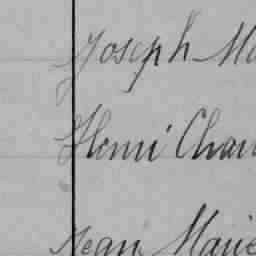 Joseph Ma
Henri Char
Jean Marie